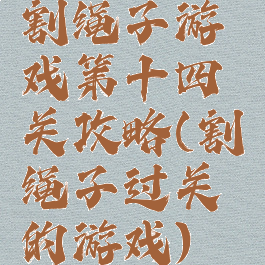 割绳子游
戏第十四
关攻略(割
绳子过关
的游戏)